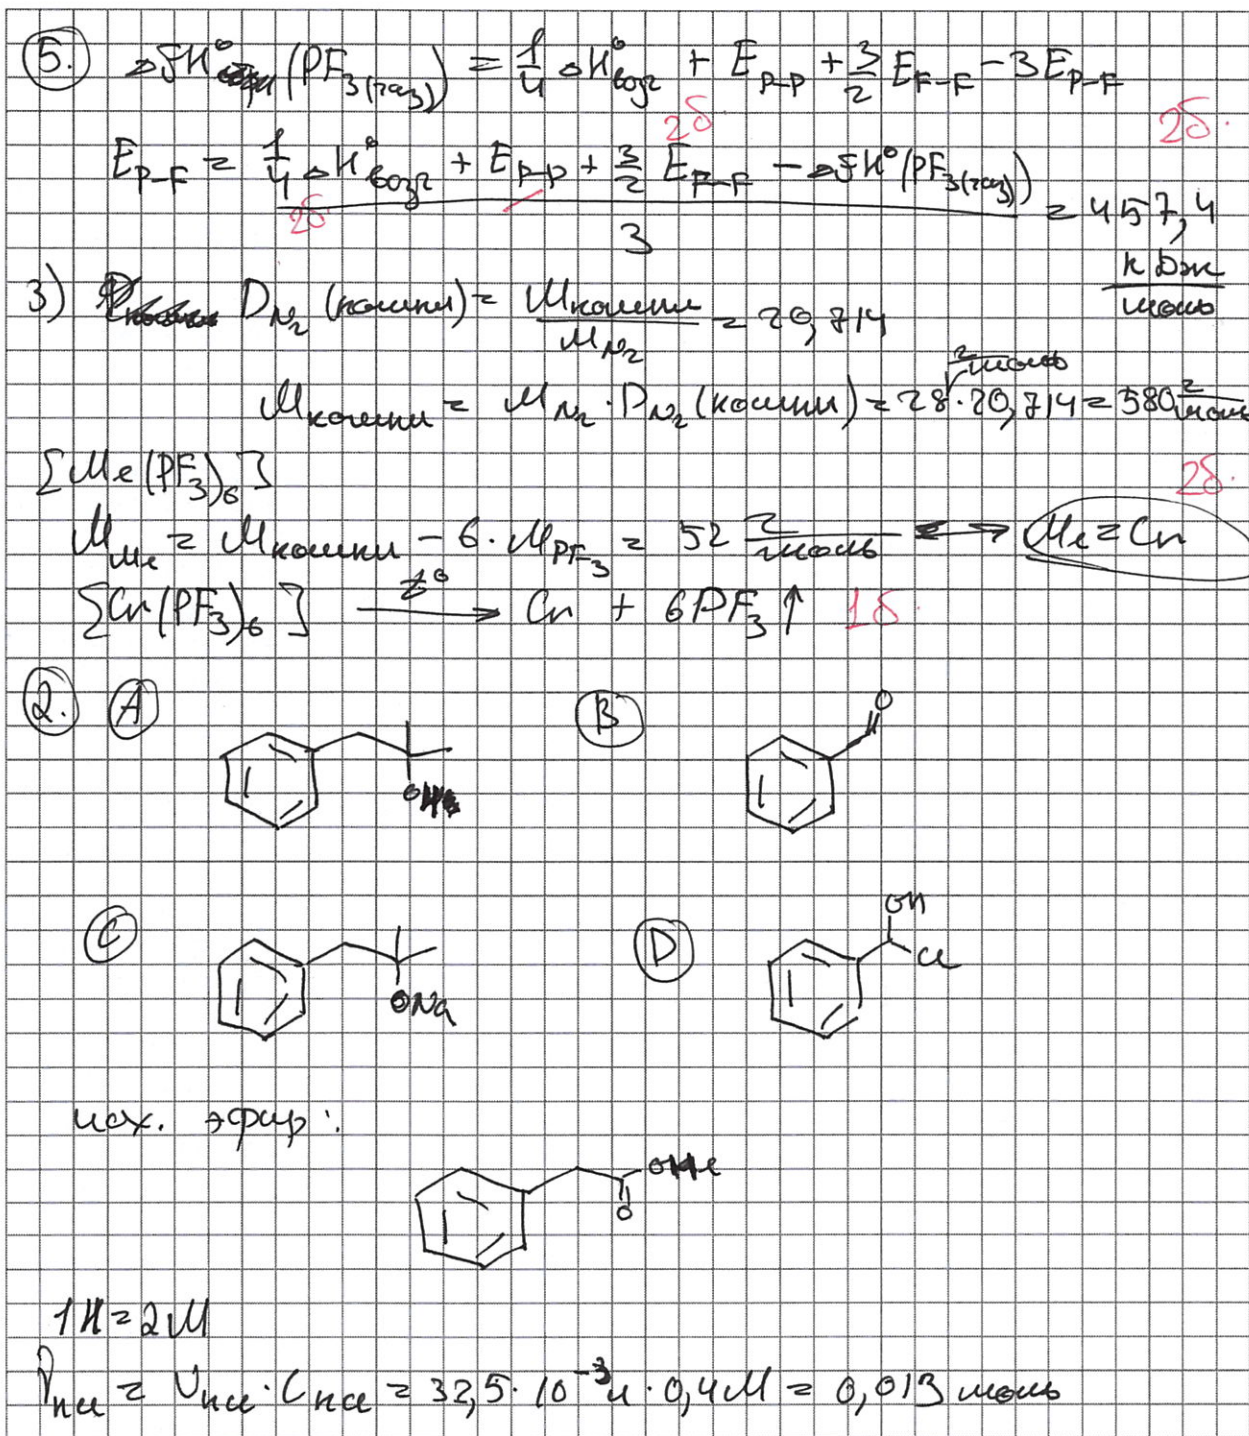 5. ΔfH° (PF3(газ)) = 1/4 ΔH°возг + E P-P + 3/2 E F-F - 3E P-F
2б 2б.
E P-F = (1/4 ΔH°возг + E P-P + 3/2 E F-F - ΔfH°(PF3(газ))) / 3 = 457,4 кДж/моль
2б
3) D N2 (кошки) = Mкошки / M N2 = 20,714
Mкошки = M N2 · D N2 (кошки) = 28 г/моль · 20,714 = 580 г/моль
[Me(PF3)6]
2б.
M Me = Mкошки - 6 · M PF3 = 52 г/моль → Me = Cr
[Cr(PF3)6] t° → Cr + 6PF3↑ 1б.
2. A B
O
OH
C D
OH
Cl
ONa
исх. эфир:
OMe
O
1H = 2M
νHCl = VHCl · CHCl = 32,5 · 10⁻³ л · 0,4M = 0,013 моль